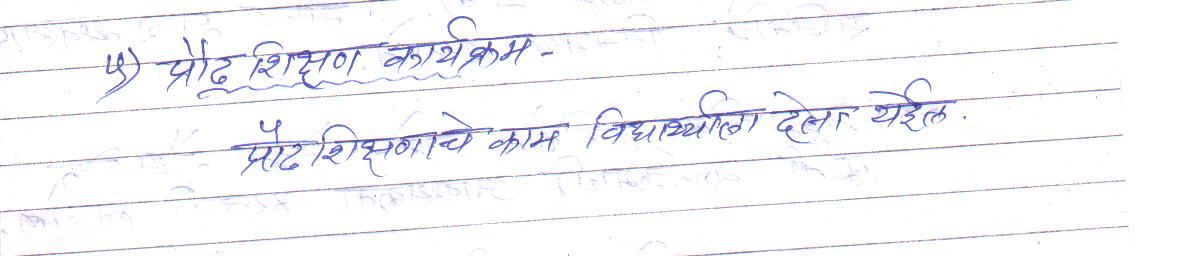 ५) प्रौढ शिक्षण कार्यक्रम -
प्रौढशिक्षणाचे काम विद्यार्थ्याला देता येईल.